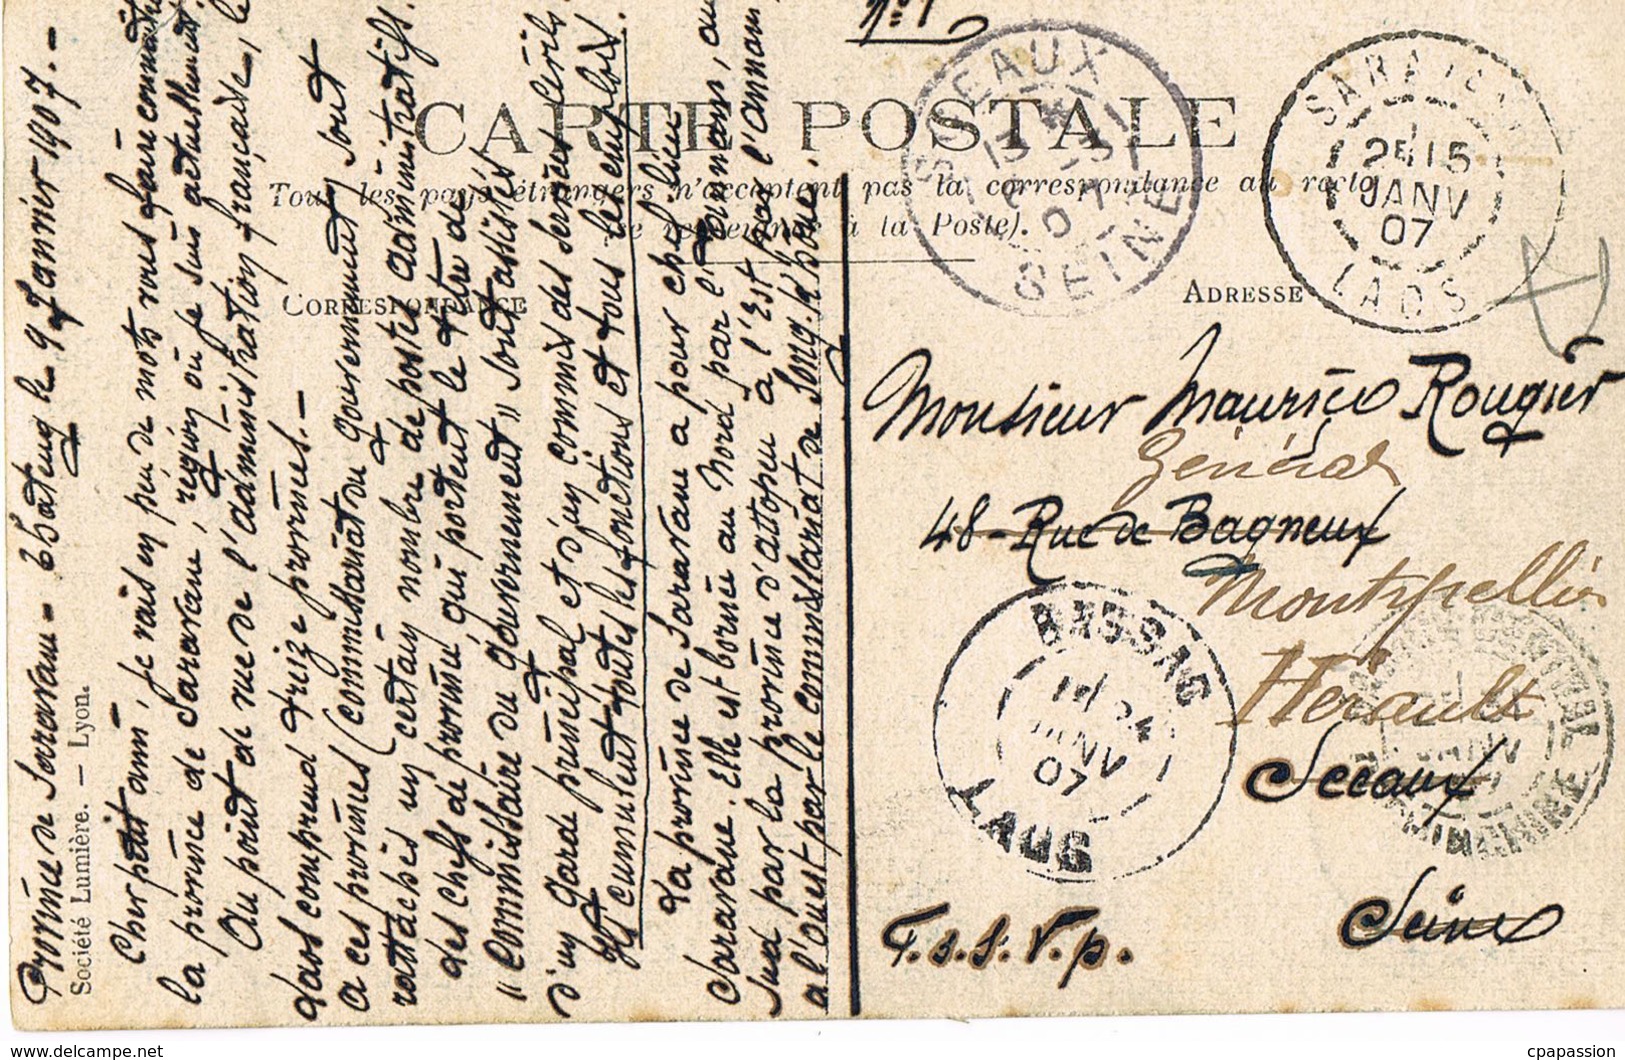 N° 1
CARTE POSTALE
Tous les pays étrangers n'acceptent pas la correspondance au recto
à la Poste).
CORRESPONDANCE
ADRESSE
SCEAUX
SEINE
07
25
JANV
07
LAOS
Monsieur Maurice Rougier
Général
48 - Rue de Bagneux
Montpellier
Hérault
Sceaux
Seine
BASSAC
24
JANV
07
LAOS
JANV
T.S.S.V.P.
Province de Saravane - Thateng le 9 Janvier 1907. -
Société Lumière. — Lyon.
Cher petit ami, je vais en peu de mots vous faire connaître
la province de Saravane, région où je suis actuellement.
Au point de vue de l'administration française, le
Laos comprend treize provinces. -
A ces provinces (commissariat du gouvernement) sont
rattachés un certain nombre de postes administratifs.
Les chefs de province, qui portent le titre de
"Commissaire du Gouvernement" sont assistés
d'un garde principal et d'un commis des services civils.
cumulent toutes les fonctions et tous les emplois.
La province de Saravane a pour chef lieu
Saravane. Elle est bornée au Nord par l' au
Sud par la province d'Attopeu à l'Est par l'Annam
à l'Ouest par le commissariat de Song-Khône.
cpapassion